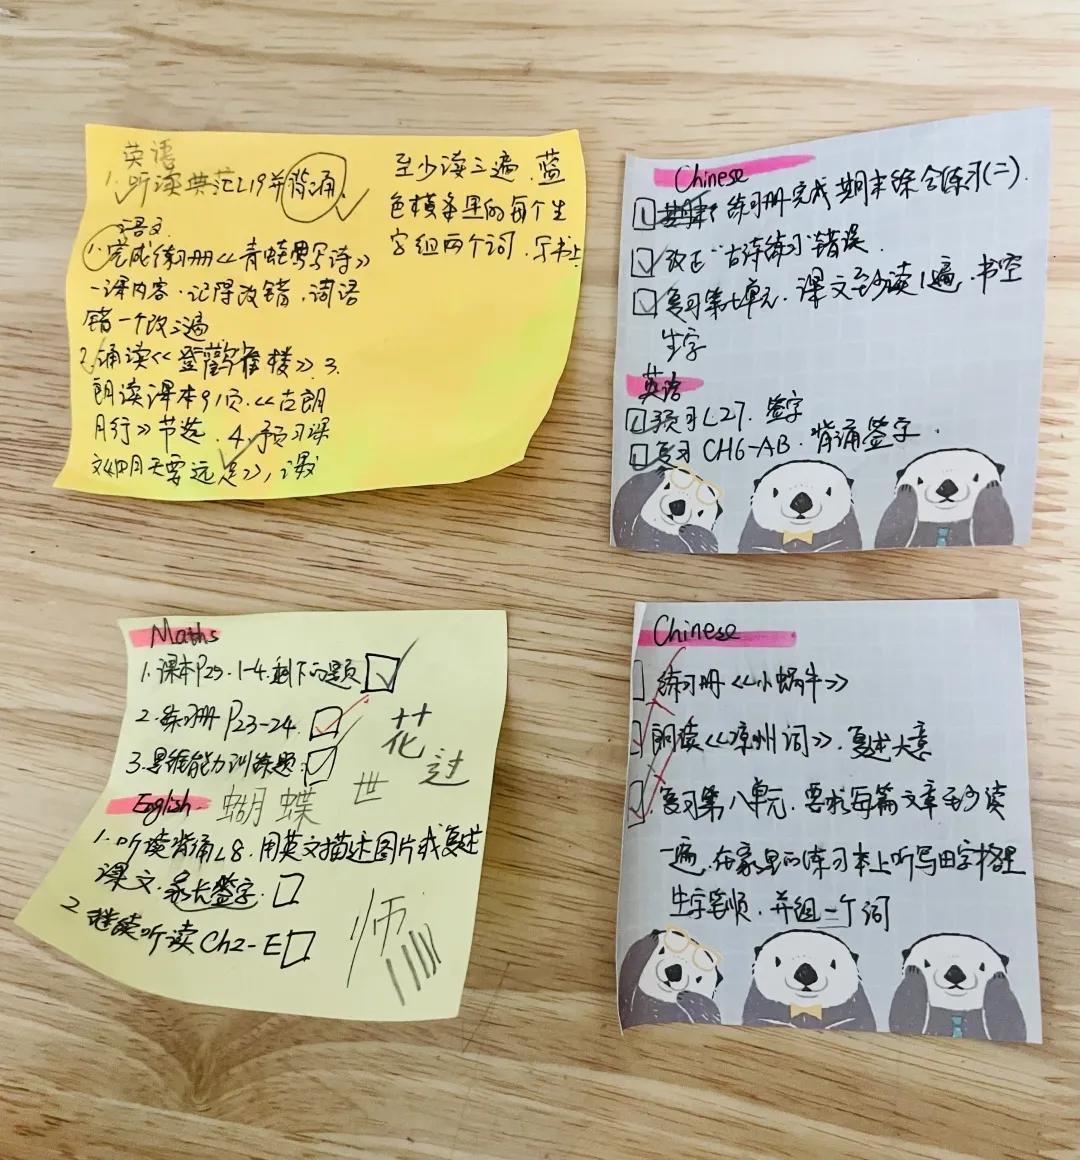 英语
1. 听读典范L19并背诵.
语文
1. 完成练习册《青蛙写诗》
一课内容.记得改错.词语
错一个改三遍
2. 诵读《登鹳雀楼》3.
朗读课本91页.《古朗
月行》节选. 4. 预习课
文《明天要远足》, 课
至少读三遍.蓝
色横条里的每个生
字组两个词.写书上
Chinese
练习册完成期末综合练习(二).
改正"古诗练习"错误.
复习第七单元.课文至少读1遍.书空
生字
英语
预习L27. 签字
复习CH6-AB.背诵签字.
Maths
1. 课本P23. 1-4.剩下的题
2. 练习册P23-24.
3. 思维能力训练题.
English.
蝴蝶
花
世
过
1. 听读背诵L8.用英文描述图片或复述
课文.家长签字.
2. 继续听读Ch2-E
师
Chinese
练习册《小蜗牛》
朗读《凉州词》.复述大意
复习第八单元.要求每篇文章至少读
一遍.在家里的练习本上听写田字格里
生字笔顺.并组一个词